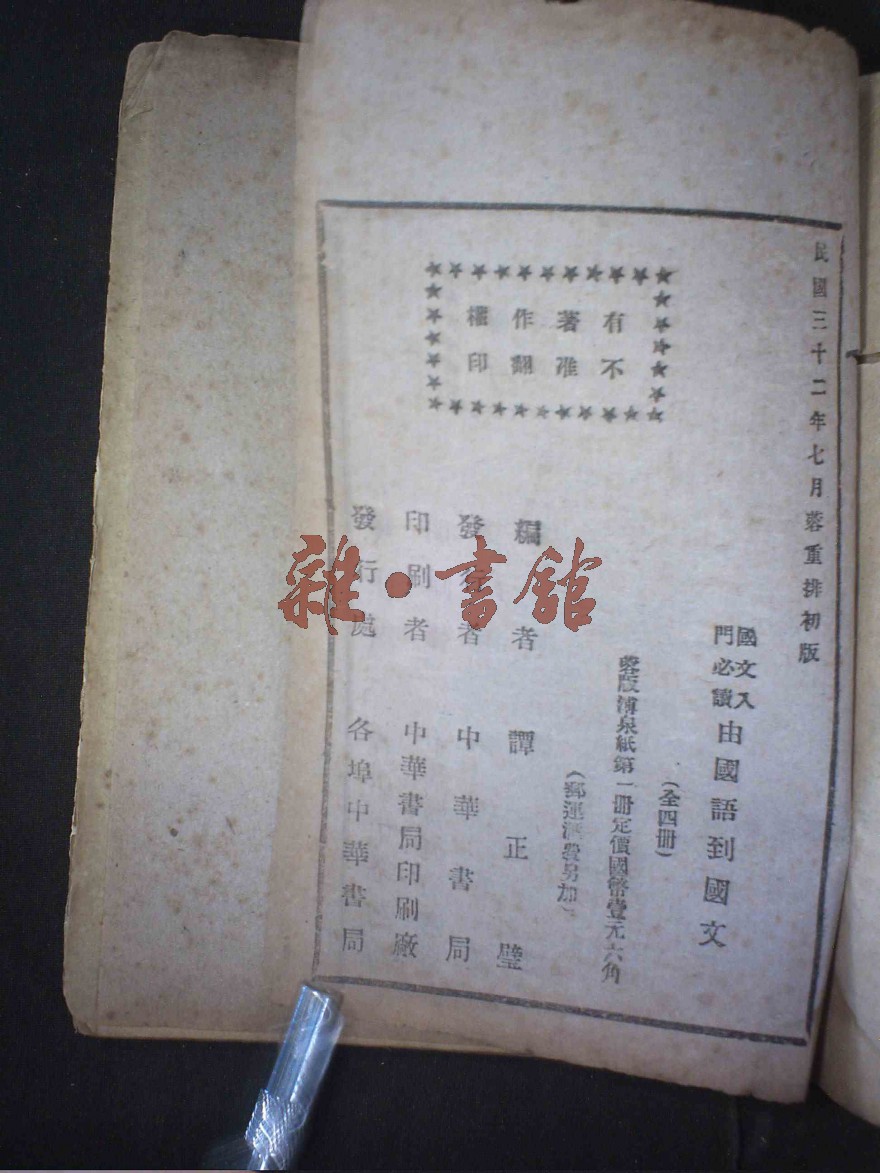 民國三十二年七月蓉重排初版
國文入門必讀
由國語到國文
(全四冊)
蓉版漙泉紙第一冊定價國幣壹元六角
(郵運滙費另加)
有著作權
不准翻印
編者 譚正璧
發行者 中華書局
印刷者 中華書局印刷廠
發行處 各埠中華書局
雜·書館